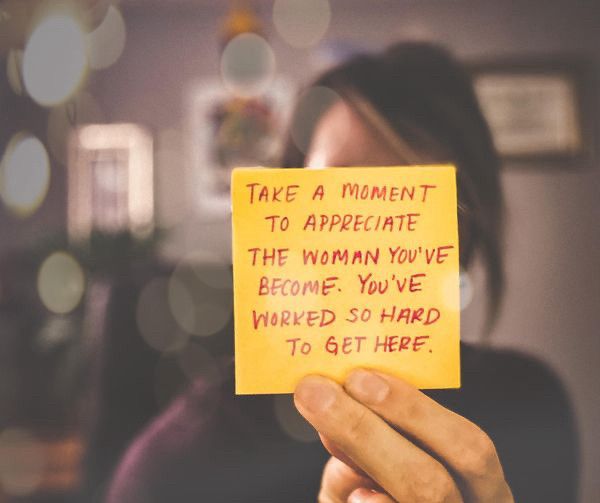 TAKE A MOMENT
TO APPRECIATE
THE WOMAN YOU'VE
BECOME. YOU'VE
WORKED SO HARD
TO GET HERE.